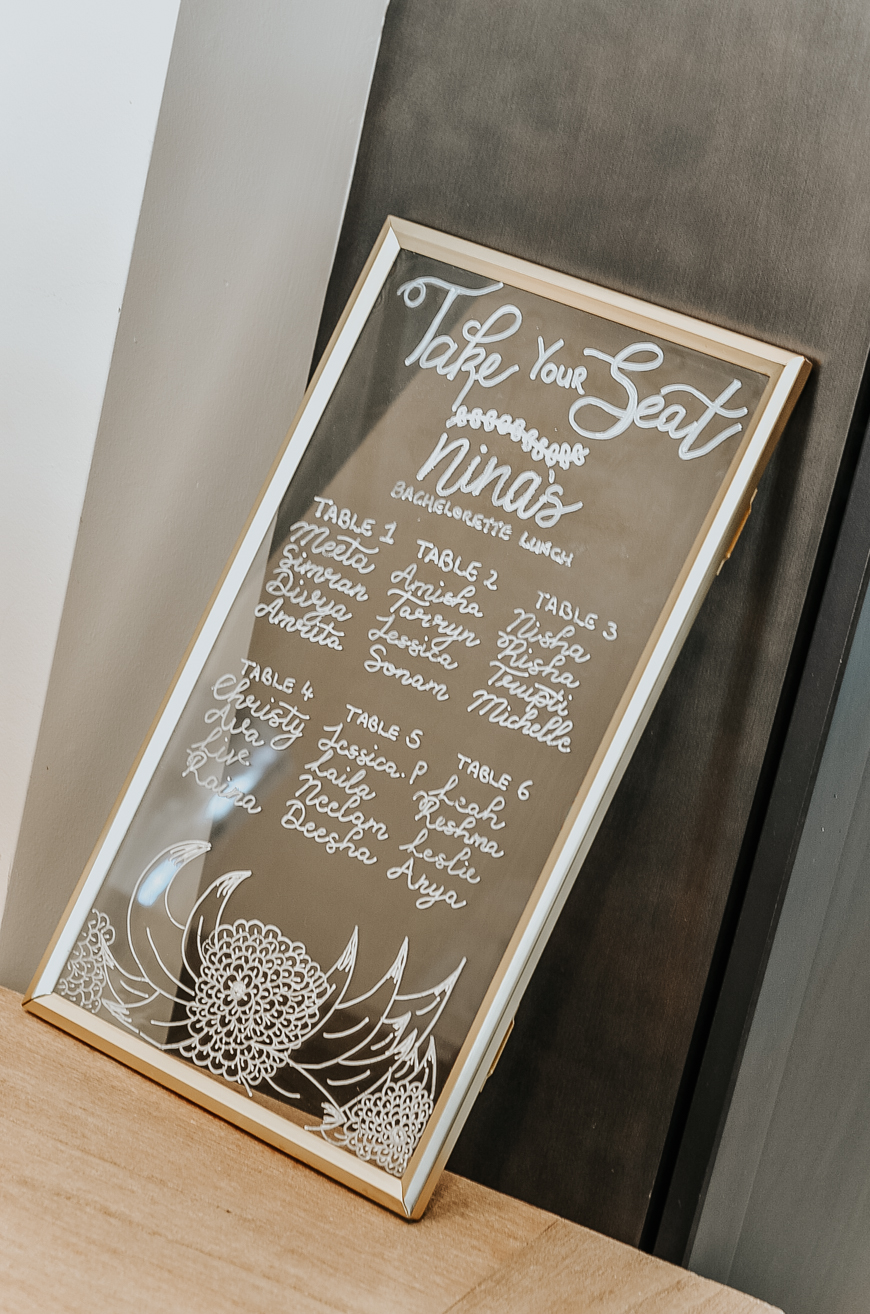 Take Your Seat
Nina's
BACHELORETTE LUNCH
TABLE 1
Meeta
Simran
Divya
Amrita
TABLE 2
Amisha
Tarryn
Jessica
Sonam
TABLE 3
Nisha
Risha
Trupti
Michelle
TABLE 4
Christy
Ava
Live
Raina
TABLE 5
Jessica.P
Laila
Neelam
Deesha
TABLE 6
Leah
Reshma
Leslie
Arya